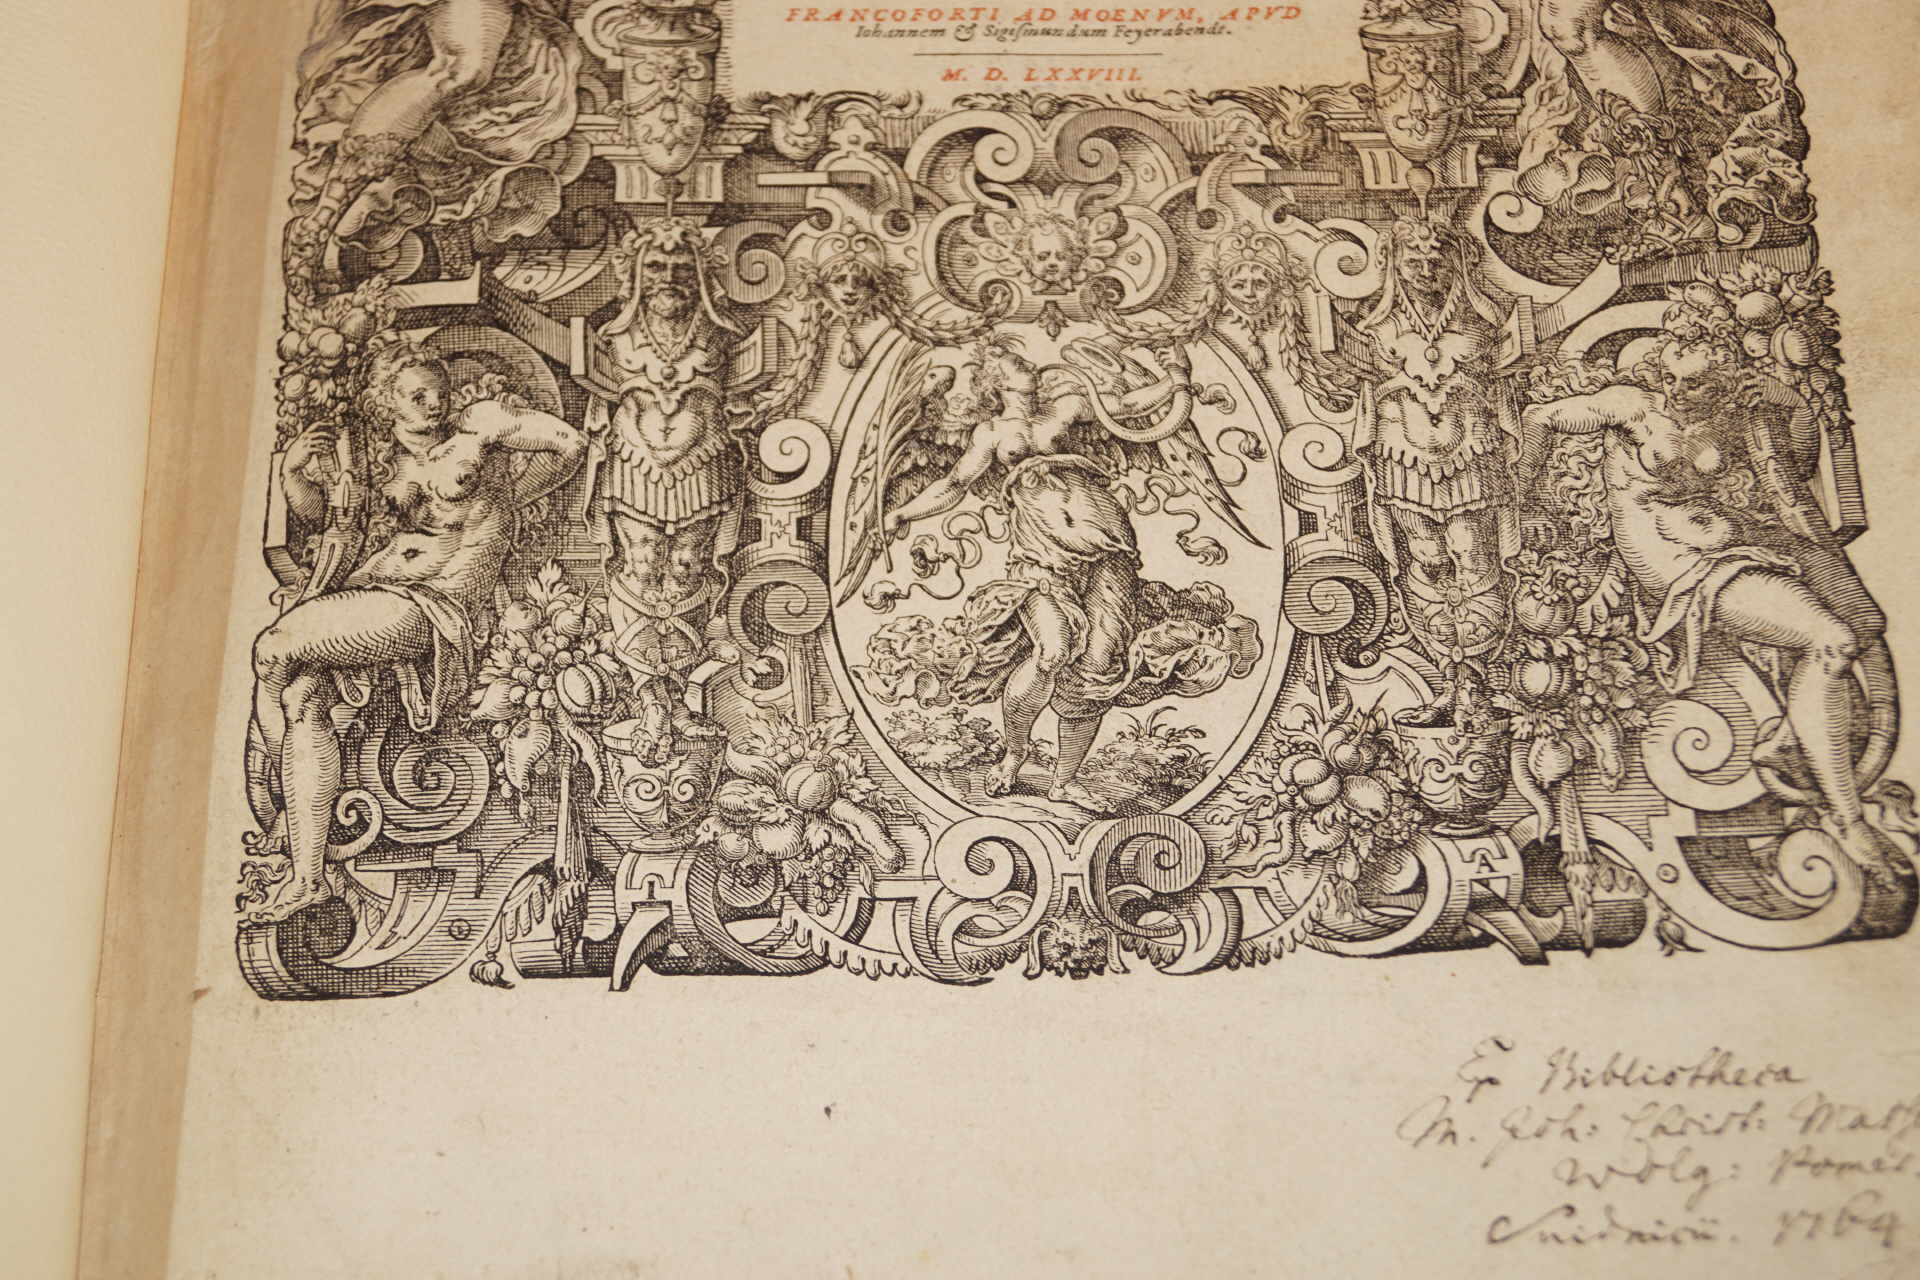 FRANCOFORTI AD MOENVM, APVD
Iohannem & Sigiſmundum Feyerabendt.
M. D. LXXVIII.
IA
Ex Bibliotheca
M. Joh: Christ:
Wolg: Pomer.
Suidnicii. 1764